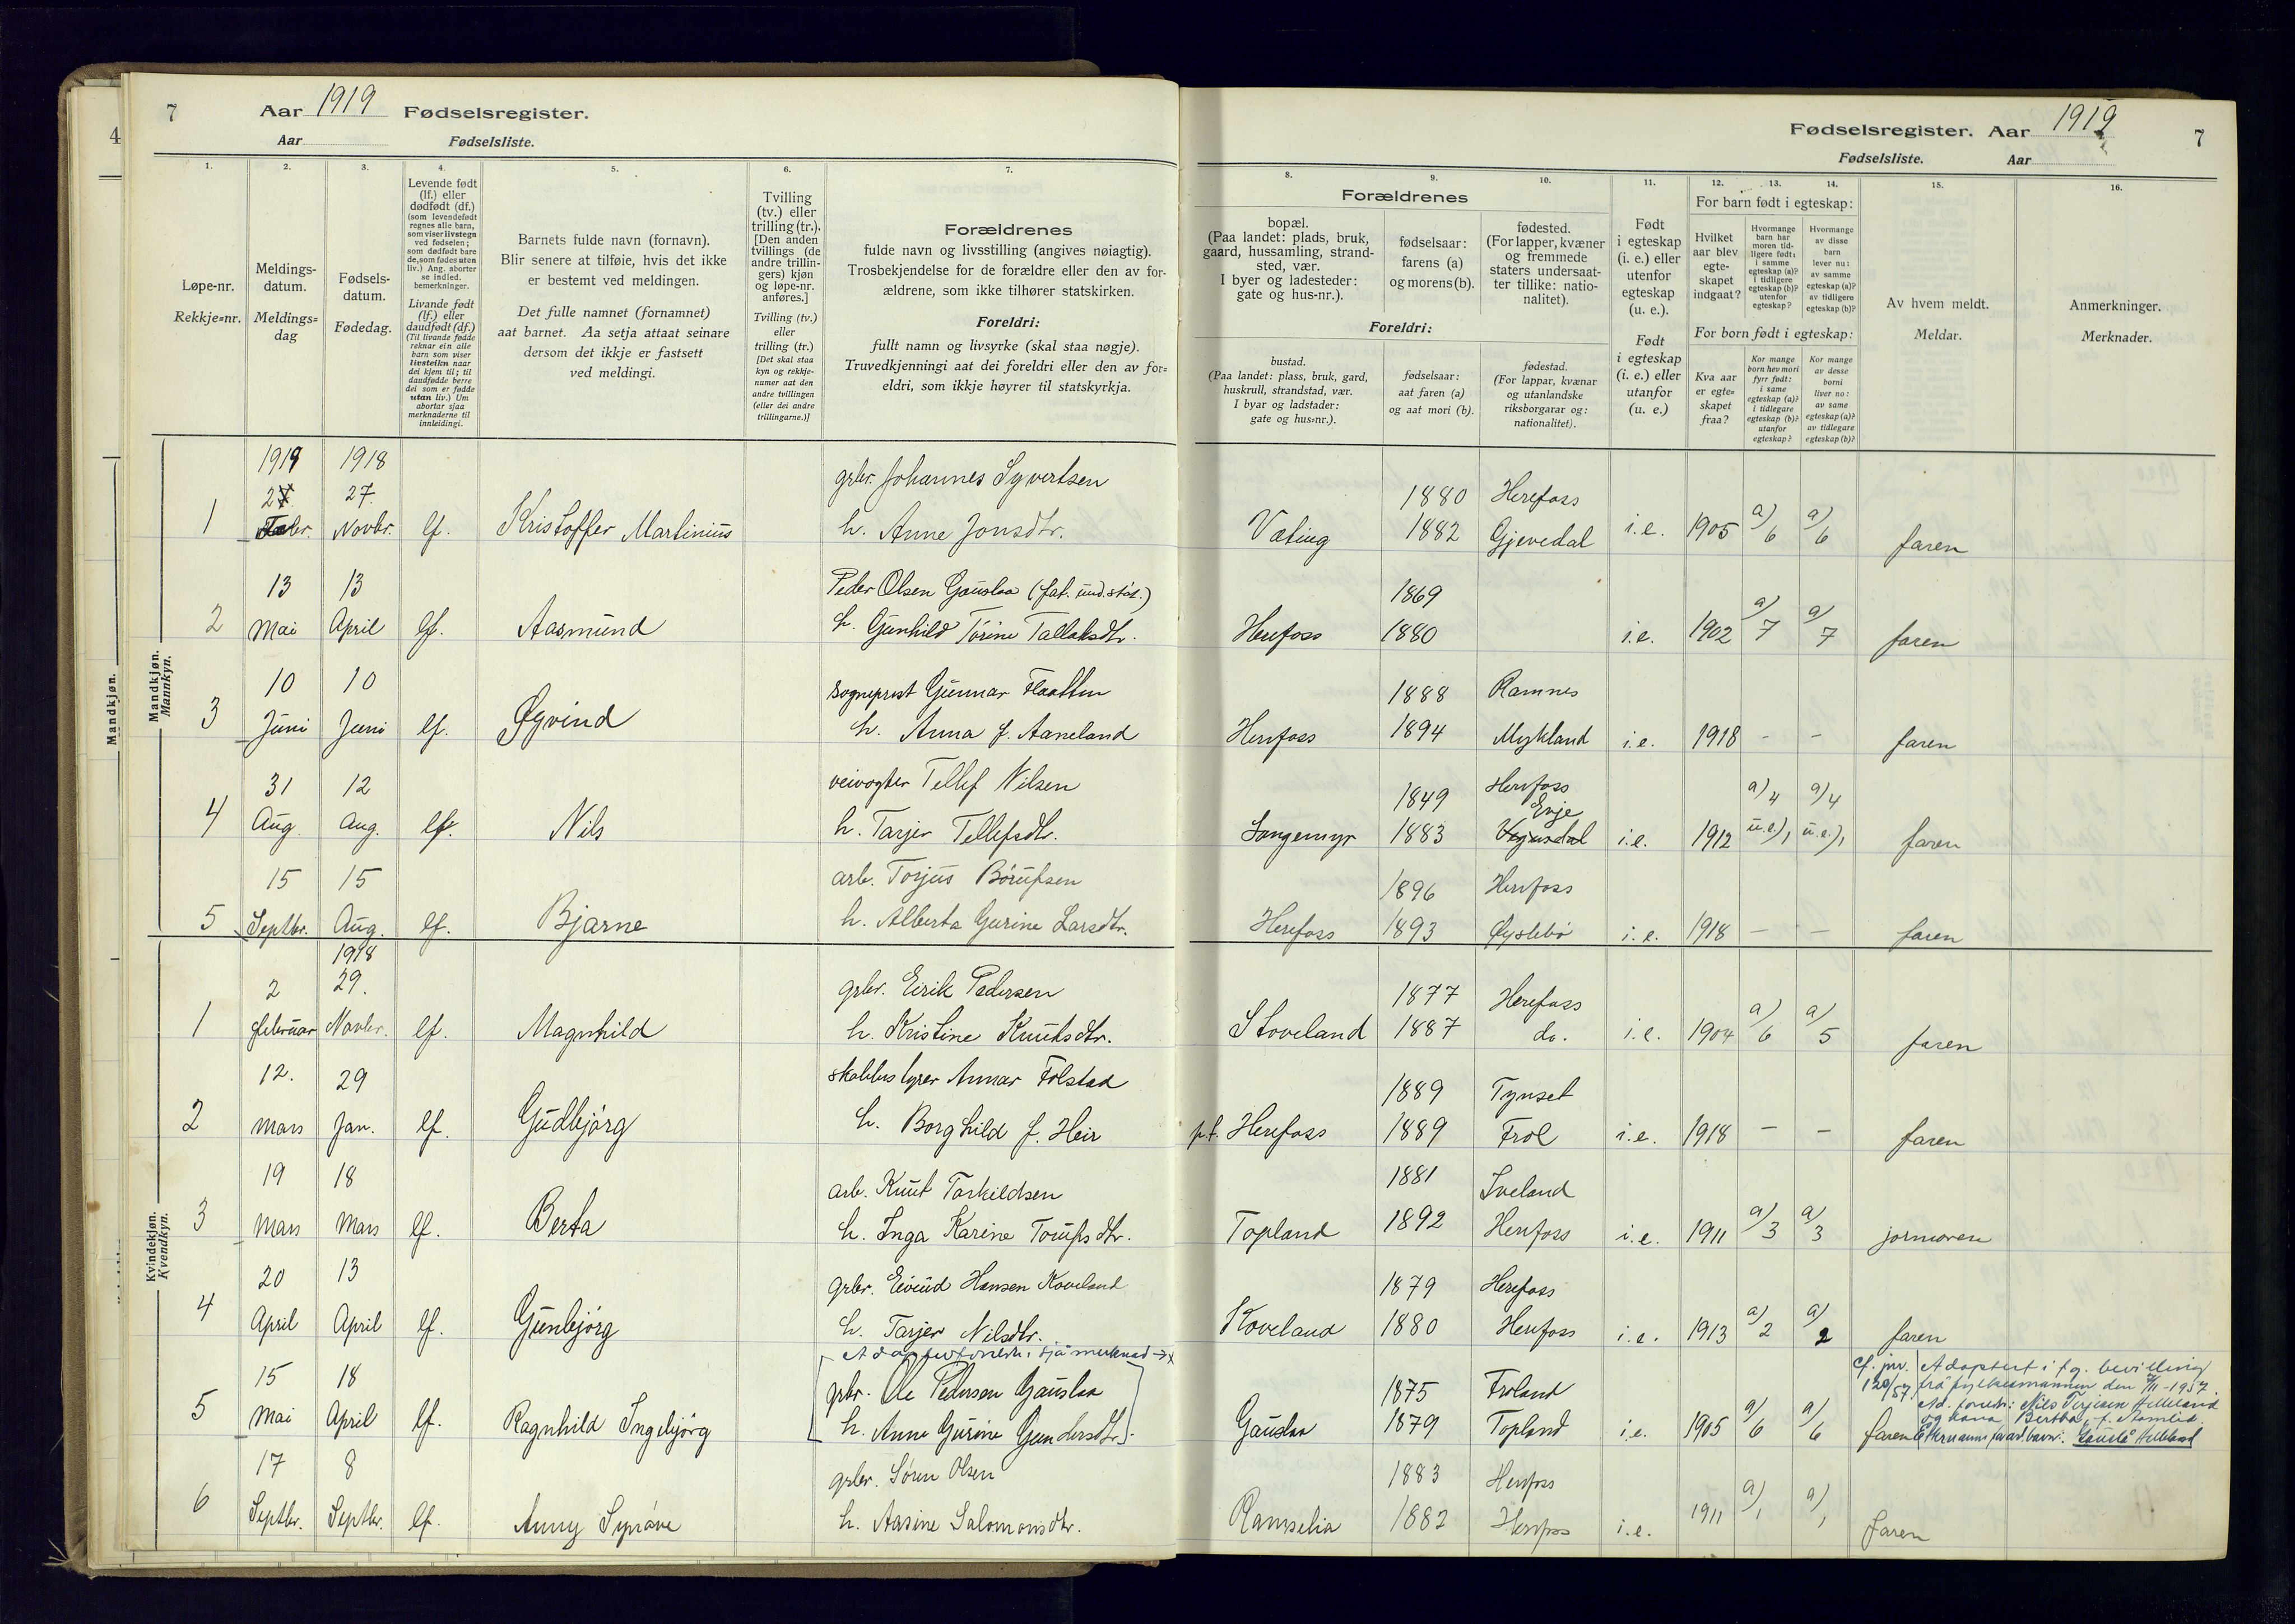 7 Aar 1919 Fødselsregister.
Aar Fødselsliste.
Fødselsregister. Aar 1919 7
Fødselsliste. Aar
4
1. 2. 3. 4. 5. 6. 7.
Løpe-nr.
Rekkje=nr.
Meldings-
datum.
Meldings=
dag
Fødsels-
datum.
Fødedag.
Levende født
(lf.) eller
dødfødt (df.)
(som levendefødt
regnes alle barn,
som viser livstegn
ved fødselen;
som dødfødt bare
de, som fødes uten
liv.) Ang. aborter
se indled.
bemerkninger.
Livande født
(lf.) eller
daudfødt (df.)
(Til livande fødde
reknar ein alle
barn som viser
livsteikn naar
dei kjem til; til
daudfødde berre
dei som er fødde
utan liv.) Um
abortar sjaa
merknaderne til
innleidingi.
Barnets fulde navn (fornavn).
Blir senere at tilføie, hvis det ikke
er bestemt ved meldingen.
Det fulle namnet (fornamnet)
aat barnet. Aa setja attaat seinare
dersom det ikkje er fastsett
ved meldingi.
Tvilling
(tv.) eller
trilling (tr.).
[Den anden
tvillings (de
andre trillin-
gers) kjøn
og løpe-nr.
anføres.]
Tvilling (tv.)
eller
trilling (tr.)
[Det skal staa
kyn og rekkje-
numer aat den
andre tvillingen
(eller dei andre
trillingarne.)]
Forældrenes
fulde navn og livsstilling (angives nøiagtig).
Trosbekjendelse for de forældre eller den av for-
ældrene, som ikke tilhører statskirken.
Foreldri:
fullt namn og livsyrke (skal staa nøgje).
Truvedkjenningi aat dei foreldri eller den av for=
eldri, som ikkje høyrer til statskyrkja.
8. 9. 10. 11. 12. 13. 14. 15. 16.
Forældrenes
bopæl.
(Paa landet: plads, bruk,
gaard, hussamling, strand-
sted, vær.
I byer og ladesteder:
gate og hus-nr.).
fødselsaar:
farens (a)
og morens (b).
fødested.
(For lapper, kvæner
og fremmede
staters undersaat-
ter tillike: natio-
nalitet).
Foreldri:
bustad.
(Paa landet: plass, bruk, gard,
huskrull, strandstad, vær.
I byar og ladstader:
gate og hus=nr.).
fødselsaar:
aat faren (a)
og aat mori (b).
fødestad.
(For lappar, kvænar
og utanlandske
riksborgarar og:
nationalitet).
Født
i egteskap
(i. e.) eller
utenfor
egteskap
(u. e.).
Født
i egteskap
(i. e.) eller
utanfor
(u. e.)
For barn født i egteskap:
Hvilket
aar blev
egte-
skapet
indgaat?
Hvormange
barn har
moren tid-
ligere født:
i samme
egteskap (a)?
i tidligere
egteskap (b)?
utenfor
egteskap?
Hvormange
av disse
barn
lever nu:
av samme
egteskap (a)?
av tidligere
egteskap (b)?
For born født i egteskap:
Kva aar
er egte=
skapet
fraa?
Kor mange
born hev mori
fyrr født:
i same
egteskap (a)?
i tidlegare
egteskap (b)?
utanfor
egteskap?
Kor mange
av desse
borni
liver no:
av same
egteskap (a)?
av tidlegare
egteskap (b)?
Av hvem meldt.
Meldar.
Anmerkninger.
Merknader.
Mandkjøn.
Mandkjøn.
Mannkyn.
1919 1918 grbr. Johannes Syvertsen 1880 Herefoss
27. 27.
1 Novbr. lf. Kristoffer Martinius h. Anne Jonsdtr. Væting 1882 Gjevedal i.e. 1905 a) 6 a) 6 faren
13 13 Peder Olsen Gauslaa (fat. und.støt.) 1869
2 Mai April lf. Aasmund h. Gunhild Torine Tallaksdtr. Herefoss 1880 i.e. 1902 a) 7 a) 7 faren
10 10 sogneprest Gunnar Flaatten 1888 Ramnes
3 Juni Juni lf. Øyvind h. Anna f. Aaneland Herefoss 1894 Mykland i.e. 1918 - - faren
31 12 veivogter Tellef Nilsen 1849 Herefoss a) 4 a) 4
Evje
4 Aug. Aug. lf. Nils h. Tarjer Tellefsdtr. Langemyr 1883 Vegusdal i.e. 1912 u.e.) 1 u.e.) 1 faren
15 15 arb. Torjus Børufsen 1896 Herefoss
5 Septbr. Aug. lf. Bjarne h. Alberta Gurine Larsdtr. Herefoss 1893 Øyslebø i.e. 1918 - - faren
Kvindekjøn.
Kvendkyn.
1918
2 29. grbr. Eirik Pedersen 1877 Herefoss
1 Februar Novbr. lf. Magnhild h. Kristine Knutsdtr. Stoveland 1887 do. i.e. 1904 a) 6 a) 5 faren
12. 29 skolebestyrer Annar Folstad 1889 Tynset
2 Mars Jan. lf. Gudbjørg h. Borghild f. Heir p.t. Herefoss 1889 Frol i.e. 1918 - - faren
19 18 arb. Knut Torkildsen 1881 Iveland
3 Mars Mars lf. Berta h. Inga Karine Toufsdtr. Topland 1892 Herefoss i.e. 1911 a) 3 a) 3 jormoren
20 13 grbr. Eivind Hansen Koveland 1879 Herefoss
4 April April lf. Gunbjørg h. Tarjer Nilsdtr. Koveland 1880 Herefoss i.e. 1913 a) 2 a) 2 faren
Adoptivforeldre: sjå merknad → x
Cf. jnr. 120/57 Adoptert i flg. bevilling
frå fylkesmannen den /11-1957.
15 18 grbr. Ole Pedersen Gauslaa 1875 Froland Ad. foreldr: Nils Terjesen Helleland
og kona Bertha, f. Stomlid.
5 Mai April lf. Ragnhild Ingebjørg h. Anne Gurine Gundersdtr. Gauslaa 1879 Topland i.e. 1905 a) 6 a) 6 faren Etternamn for ad.barn: Gauslå Helleland
17 8 grbr. Søren Olsen 1883 Herefoss
6 Septbr. Septbr. lf. Anny Synøve h. Aasine Salomonsdtr. Ramselia 1882 Herefoss i.e. 1911 a) 1 a) 1 faren